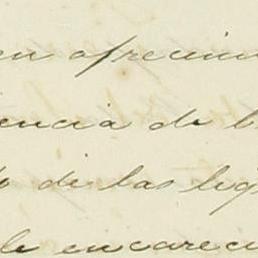 en ofrecim
encia de l
de las leg
le encareci